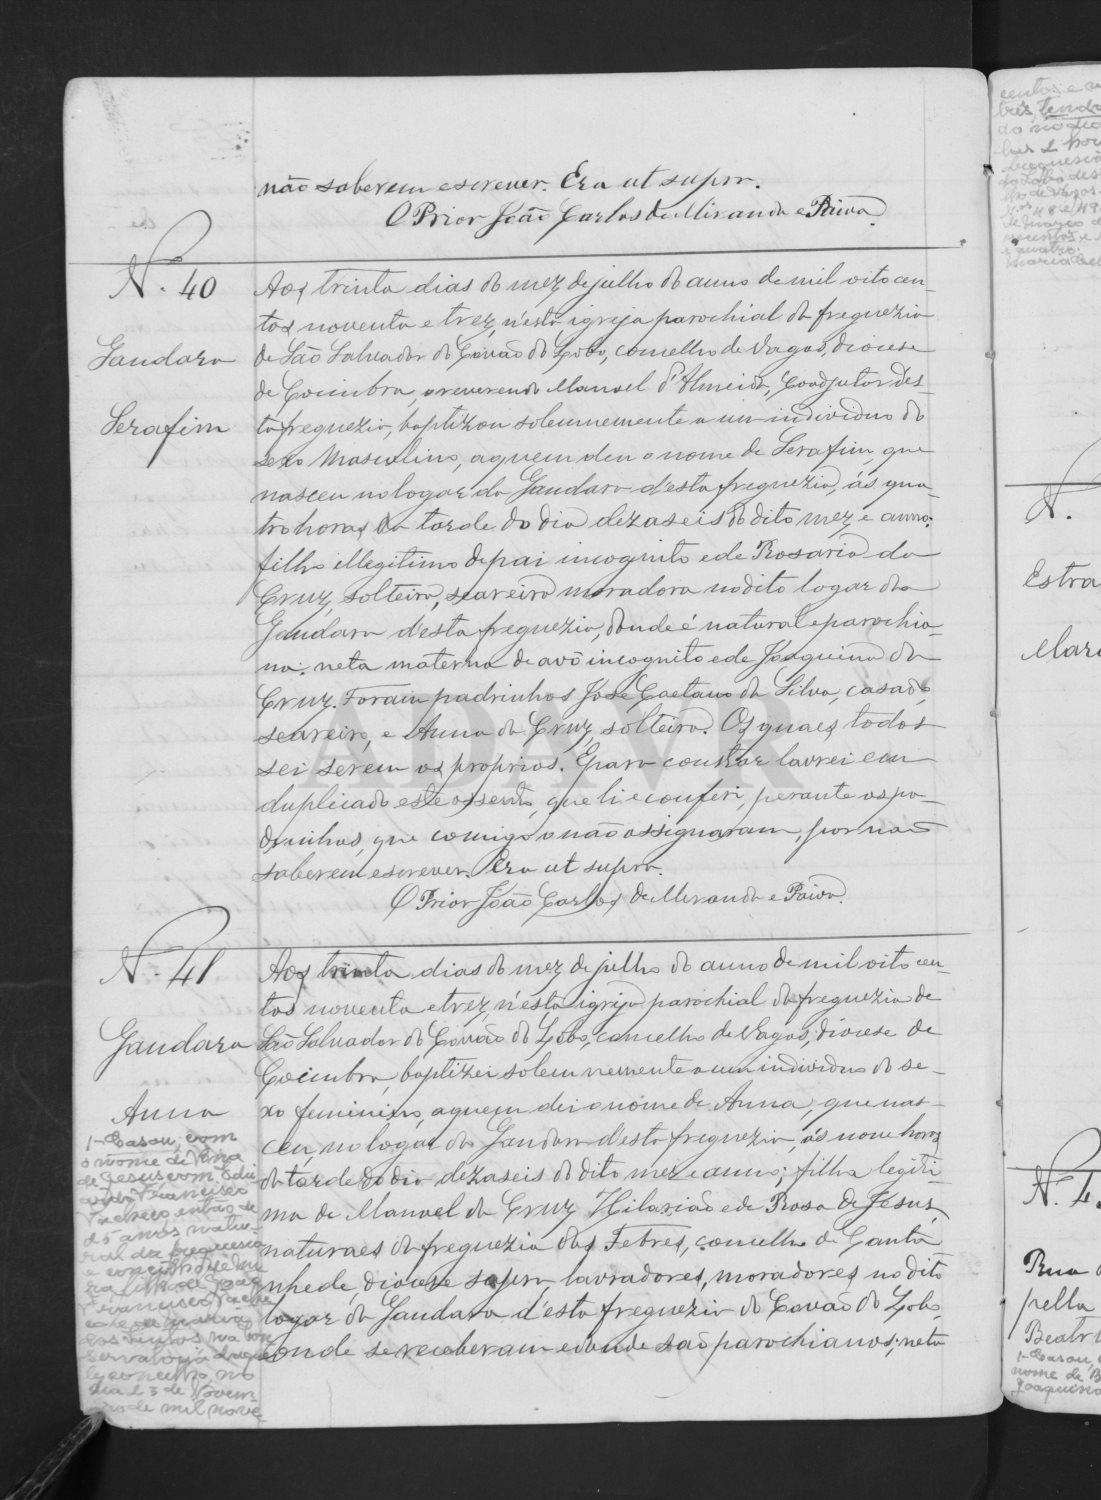 não saberem escrever. Era ut supra.
O Prior João Carlos de Miranda e Paiva.
N. 40
Gandara
Serafim
Aos trinta dias do mez de julho do anno de mil oito cen-
tos noventa e trez, n'esta igreja parochial da freguezia
de São Salvador do Covão do Lobo, concelho de Vagos, diocese
de Coimbra, o reverendo Manoel d'Almeida, Coadjutor des-
ta freguezia, baptizou solemnemente a um individuo do
sexo masculino, a quem deu o nome de Serafim, que
nasceu no logar da Gandara d'esta freguezia, ás qua-
tro horas da tarde do dia dezaseis do dito mez e anno;
filho illegitimo de pai incognito e de Rosaria da
Cruz, solteira, seareira moradora no dito logar da
Gandara d'esta freguezia, donde é natural e parochia-
na; neta materna de avô incognito e de Joaquina da
Cruz. Foram padrinhos José Caetano da Silva, casado,
seareiro, e Anna da Cruz, solteira. Os quaes todos
sei serem os proprios. E para constar lavrei em
duplicado este assento, que li e conferi, perante os pa-
drinhos, que comigo o não assignaram, por não
saberem escrever. Era ut supra.
O Prior João Carlos de Miranda e Paiva.
N. 41
Gandara
Anna
Aos trinta dias do mez de julho do anno de mil oito cen-
tos noventa e trez, n'esta igreja parochial da freguezia de
São Salvador do Covão do Lobo, concelho de Vagos, diocese de
Coimbra, baptizei solemnemente a um individuo do se-
xo feminino, a quem dei o nome de Anna, que nas-
ceu, no logar da Gandara d'esta freguezia, ás nove horas
da tarde do dia dezaseis do dito mez e anno; filha legiti-
ma de Manoel da Cruz Hilarião e de Rosa de Jesus,
naturaes da freguezia das Febres, concelho de Canta-
nhede, diocese supra lavradores, moradores no dito
logar da Gandara d'esta freguezia do Covão do Lobo,
onde se receberam e donde são parochianos; neta
1- Casou, com
o nome de
de Jesus com
Francisco
Pacheco
anos natu-
ral da freguesia
e concelho de Mi-
ra filho de
Francisco
con-
servatoria
le concelho, no
dia 23 de Novem-
bro de mil nove-
centos e
tres, tendo
N.
Estra
Mari
N. 4
Rua
pella
Beatri
1- Casou,
nome de B
Joaquina
ADAVR